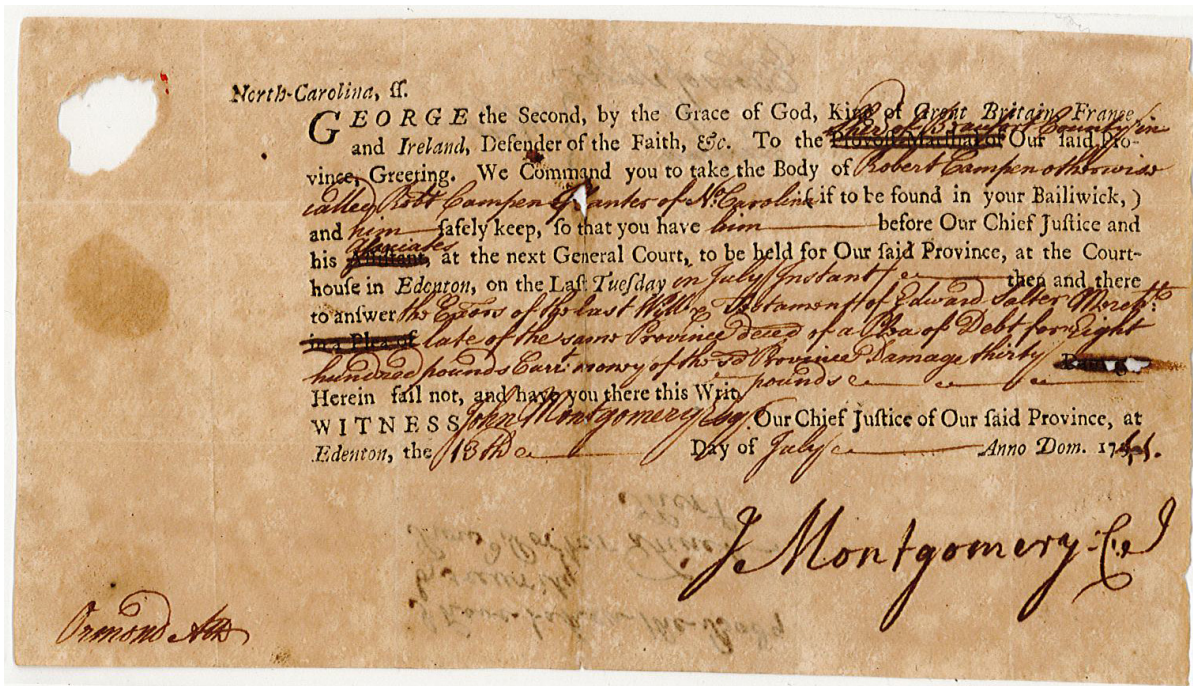 North-Carolina, ſſ.
GEORGE the Second, by the Grace of God, King of Great Britain, France,
and Ireland, Defender of the Faith, &c. To the Sher. of Beaufort County in Our ſaid Pro-
vince, Greeting. We Command you to take the Body of Robert Campen otherwise
called Robt Campen Planter of No. Carolina (if to be found in your Bailiwick,)
and him ſafely keep, ſo that you have him before Our Chief Juſtice and
his Associates, at the next General Court, to be held for Our ſaid Province, at the Court-
houſe in Edenton, on the Laſt Tueſday in July Instant then and there
to anſwer the Exors of the last Will & Testament of Edward Salter Mercht.
in a Plea of late of the same Province decd of a Plea of Debt for Eight
hundred pounds Curt. money of the sd Province Damage thirty
pounds
Herein fail not, and have you there this Writ.
WITNESS John Montgomery Esqr. Our Chief Juſtice of Our ſaid Province, at
Edenton, the 13th Day of July Anno Dom. 174
J Montgomery C J
Ormond Atto